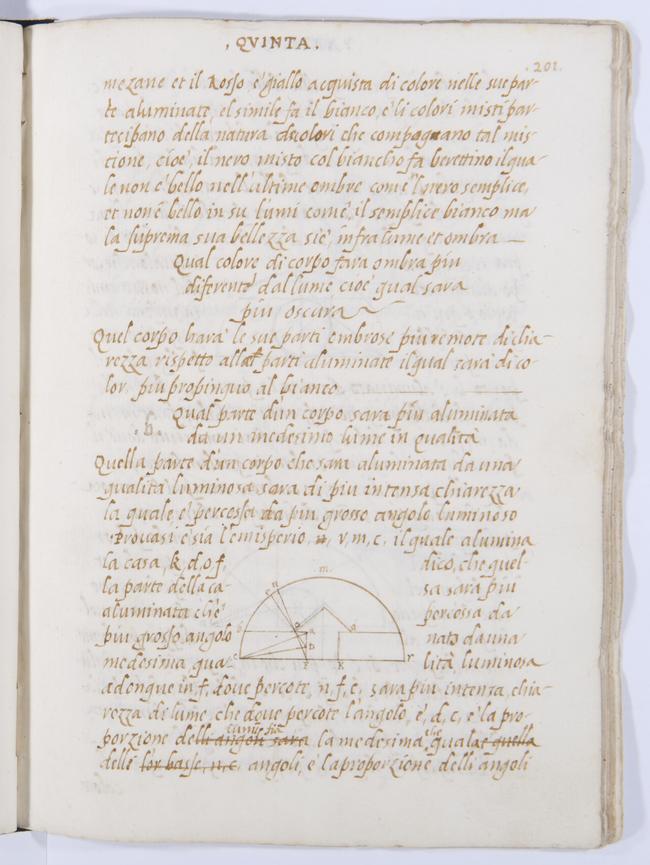 , QVINTA .
. 201.
mezane et il Rosso e giallo acquista di colore nelle sue par-
te aluminate, el simile fa il bianco, e li colori misti par-
tecipano della natura de colori che compognano tal mis-
tione, cioe, il nero misto col biancho fa berettino ilqua-
le non e bello nell' ultime ombre com'è l' nero semplice,
et non é bello in su lumi com'è, il semplice bianco ma
la suprema sua bellezza sie, infra lume et ombra —
Qual colore di corpo fara ombra piu
diferente dal lume cioe qual sara
piu oscura ~
Quel corpo hara le sue parti ombrose piu remote di chia-
rezza rispetto alle parti aluminate ilqual sara di co-
lor, piu propinquo al bianco
Qual parte d'un corpo, sara piu aluminata
. b. da un medesimo lume in qualità
Quella parte d'un corpo che sara aluminata da una
qualità luminosa sara di piu intensa chiarezza
la quale e percossa da piu grosso angolo luminoso
Provasi e sia l'emisperio, r, m, c, il quale alumina
la casa, k, d, o, f, dico, che quel-
la parte della ca- sa sara piu
aluminata ch'e percossa da
piu grosso angolo nato da una
medesima, qua- lità, luminosa
adonque in, f, dove percote, n, f, c, sara piu intenza, chia-
rezza di lume, che dove percote l'angolo, e, d, c, e la pro-
porzione delli angoli sara la medesima, che quala e quella
delli lor basse, n, c, angoli, e la proporzione delli angoli
m
n
e
o
b
a
R
D
c
F
K
r